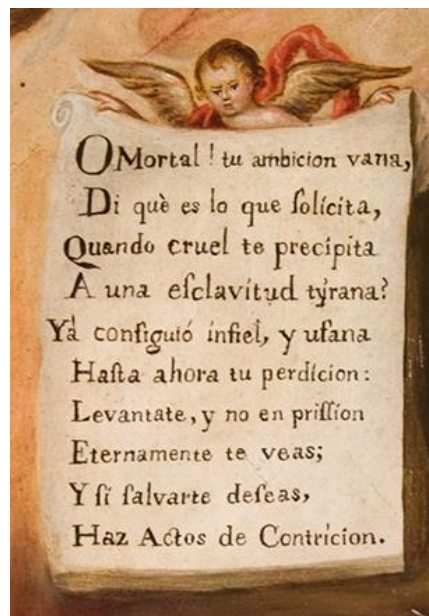 O Mortal! tu ambicion vana,
Di què es lo que ſolícita,
Quando cruel te precípita
A una eſclavitud tyrana?
Yà conſiguió infiel, y ufana
Haſta ahora tu perdícion:
Levantate, y no en priſſion
Eternamente te veas;
Y ſi ſalvarte deſeas,
Haz Actos de Contrícion.